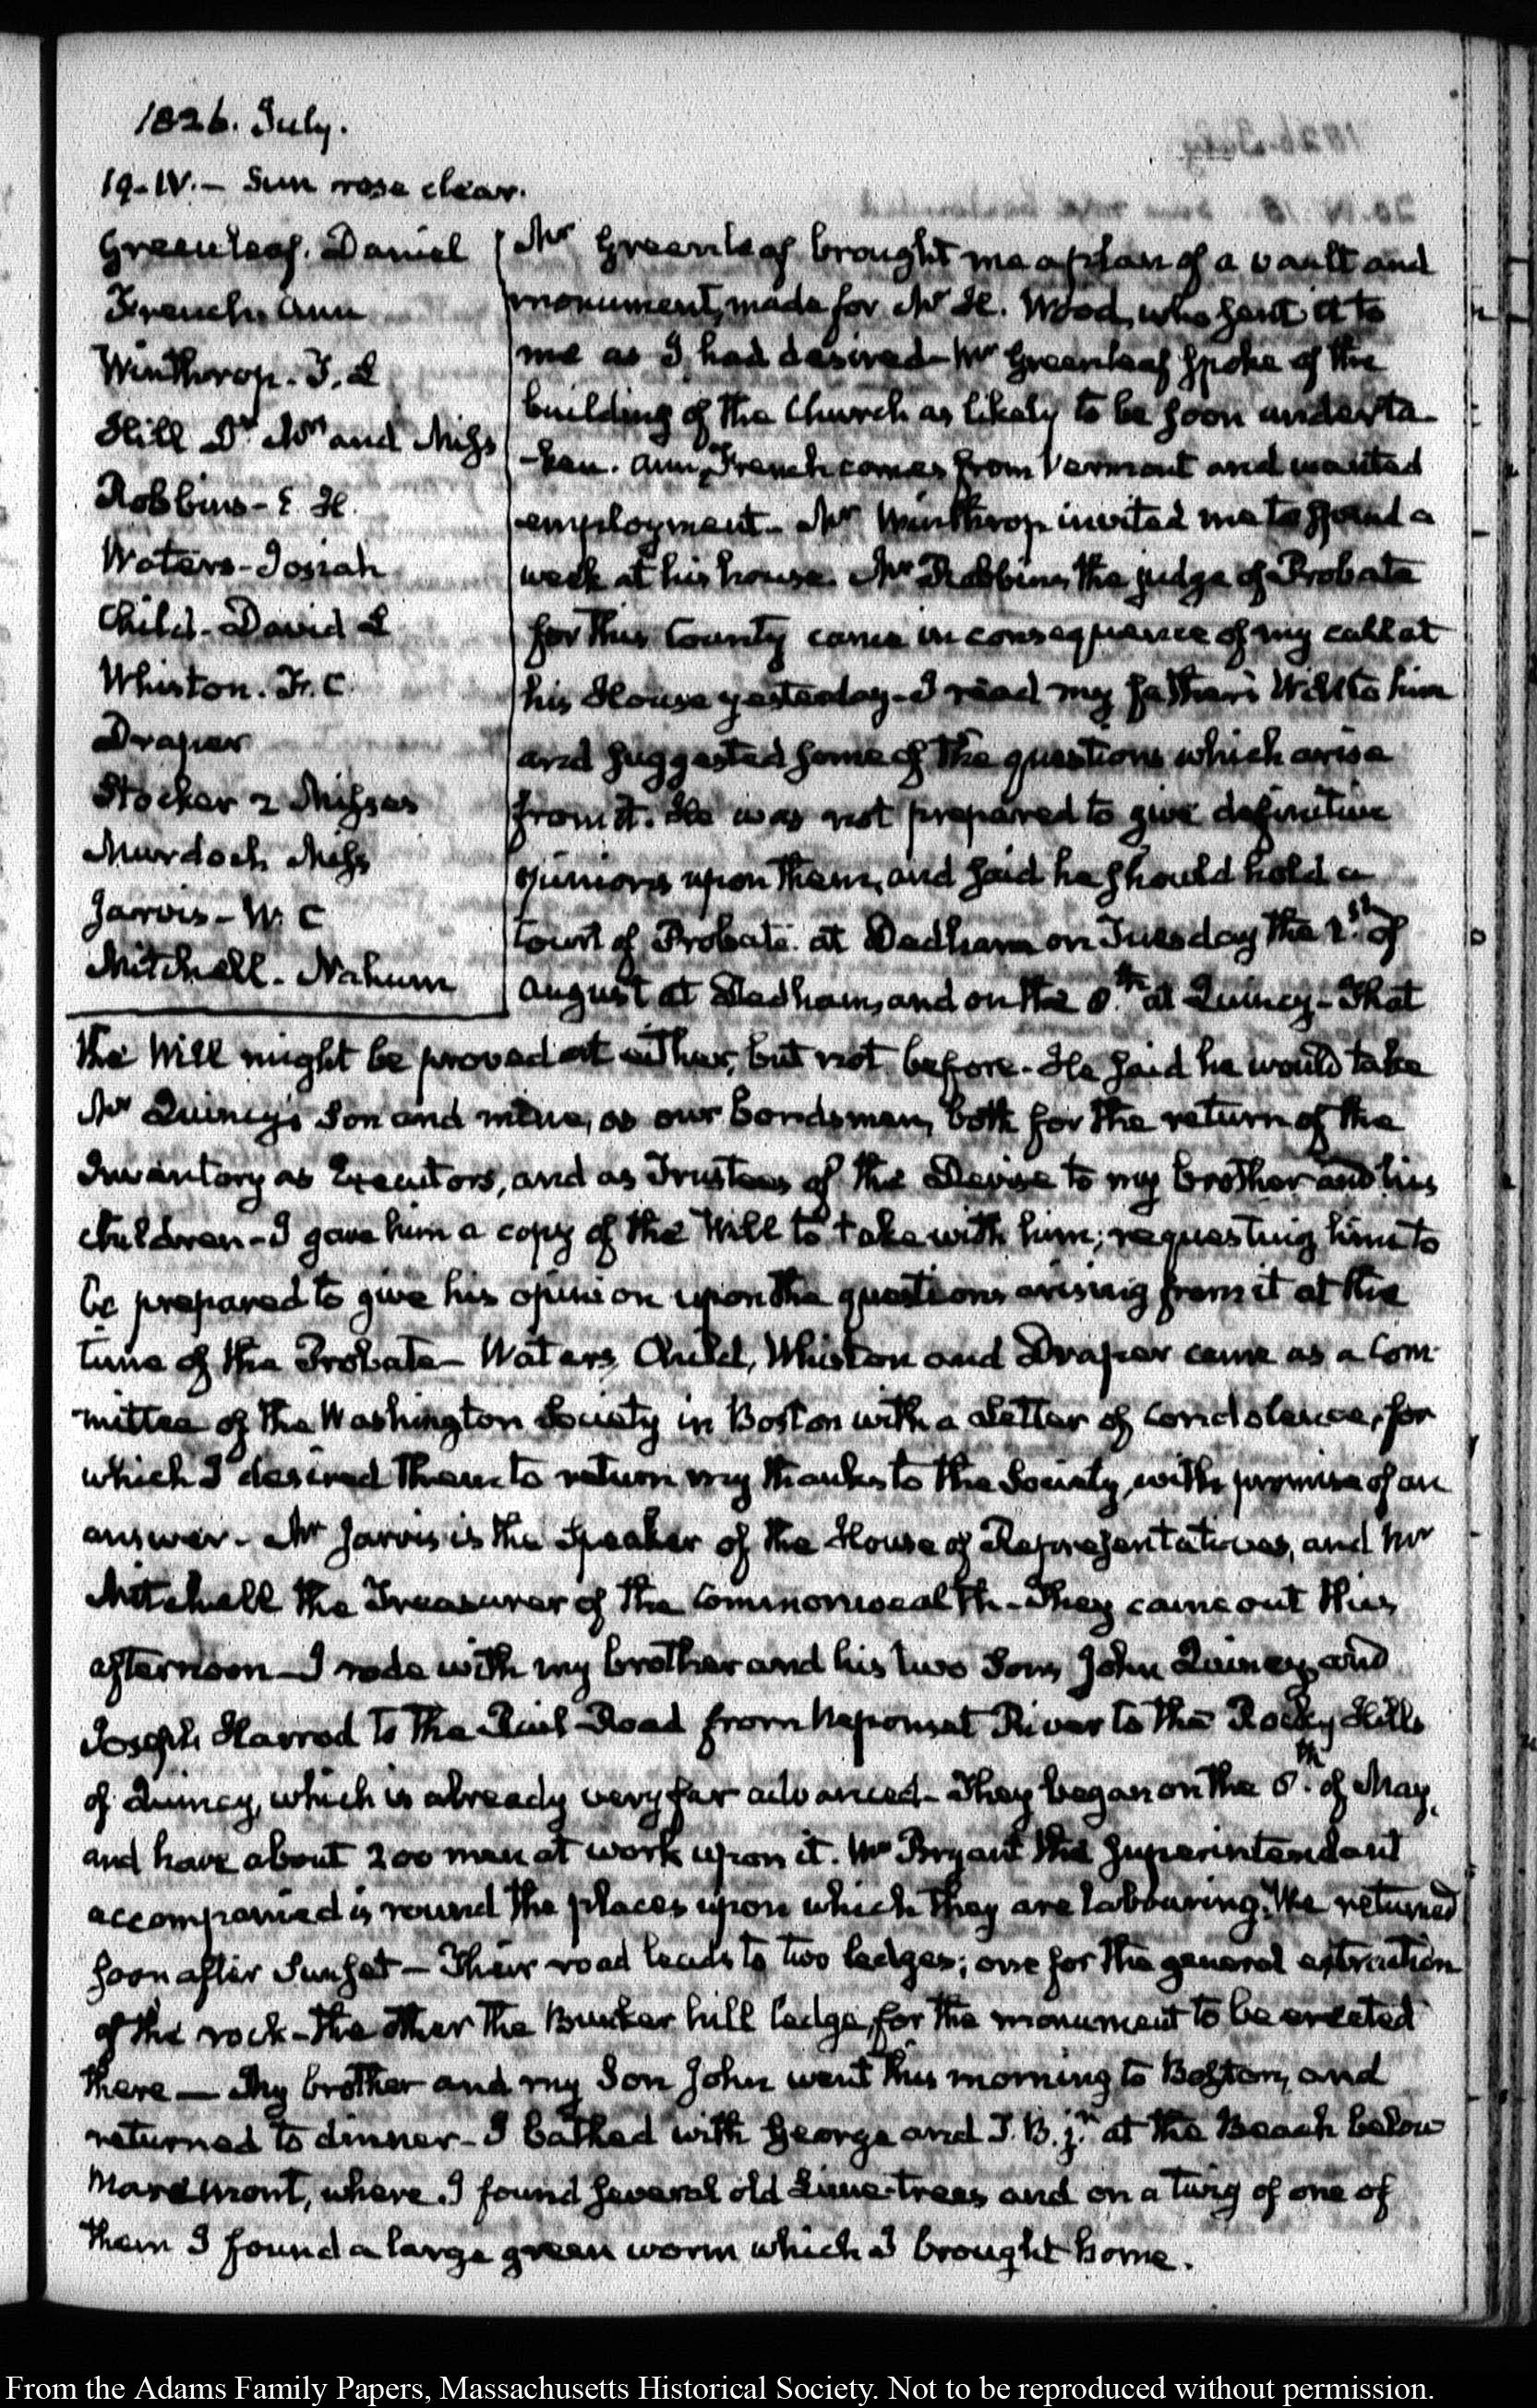 1826. July.
19-IV.- Sun rose clear.
Greenleaf. Daniel
French. Ann
Winthrop. T. L
Hill Dr Mrs and Miss
Robbins- E. H.
Waters- Josiah
Child- David L
Whiston. F. C
Draper
Stocker 2 Misses
Murdoch Miss
Jarvis- W. C
Mitchell- Nahum
Mr Greenleaf brought me a plan of a vault and
monument, made for Mr H. Wood, who sent it to
me as I had desired- Mr Greenleaf spoke of the
building of the Church as likely to be soon underta
-ken. Ann French comes from Vermont and wanted
employment- Mr Winthrop invited me to spend a
week at his house. Mr Robbins, the judge of Probate
for this County came in consequence of my call at
his House yesterday- I read my father's Will to him
and suggested some of the questions which arise
from it. He was not prepared to give definitive
opinions upon them, and said he should hold a
Court of Probate at Dedham on Tuesday the 1.st of
August at Dedham, and on the 8.th at Quincy- That
the Will might be proved at either, but not before- He said he would take
Mr Quincy's Son and mine, as our bondsmen, both for the return of the
Inventory as Executors, and as Trustees of the Devise to my brother and his
children- I gave him a copy of the Will to take with him; requesting him to
be prepared to give his opinion upon the questions arising from it at the
time of the Probate- Waters, Child, Whiston and Draper came as a Com-
mittee of the Washington Society in Boston with a Letter of condolence, for
which I desired them to return my thanks to the Society, with promise of an
answer- Mr Jarvis is the Speaker of the House of Representatives, and Mr
Mitchell the Treasurer of the Commonwealth- They came out this
afternoon- I rode with my brother and his two Sons, John Quincy, and
Joseph Harrod to the Rail-Road from Neponset River to the Rocky Hills
of Quincy, which is already very far advanced- They began on the 8.th of May,
and have about 200 men at work upon it. Mr Bryant the Superintendant
accompanied us round the places upon which they are labouring. We returned
soon after Sunset- Their road leads to two ledges; one for the general extraction
of the rock- the other the Bunker hill ledge, for the monument to be erected
there- My brother and my Son John went this morning to Boston, and
returned to dinner- I bathed with George and T. B. jr. at the Beach below
Mare mont, where I found several old Lime-trees and on a twig of one of
them I found a large green worm which I brought home.
From the Adams Family Papers, Massachusetts Historical Society. Not to be reproduced without permission.